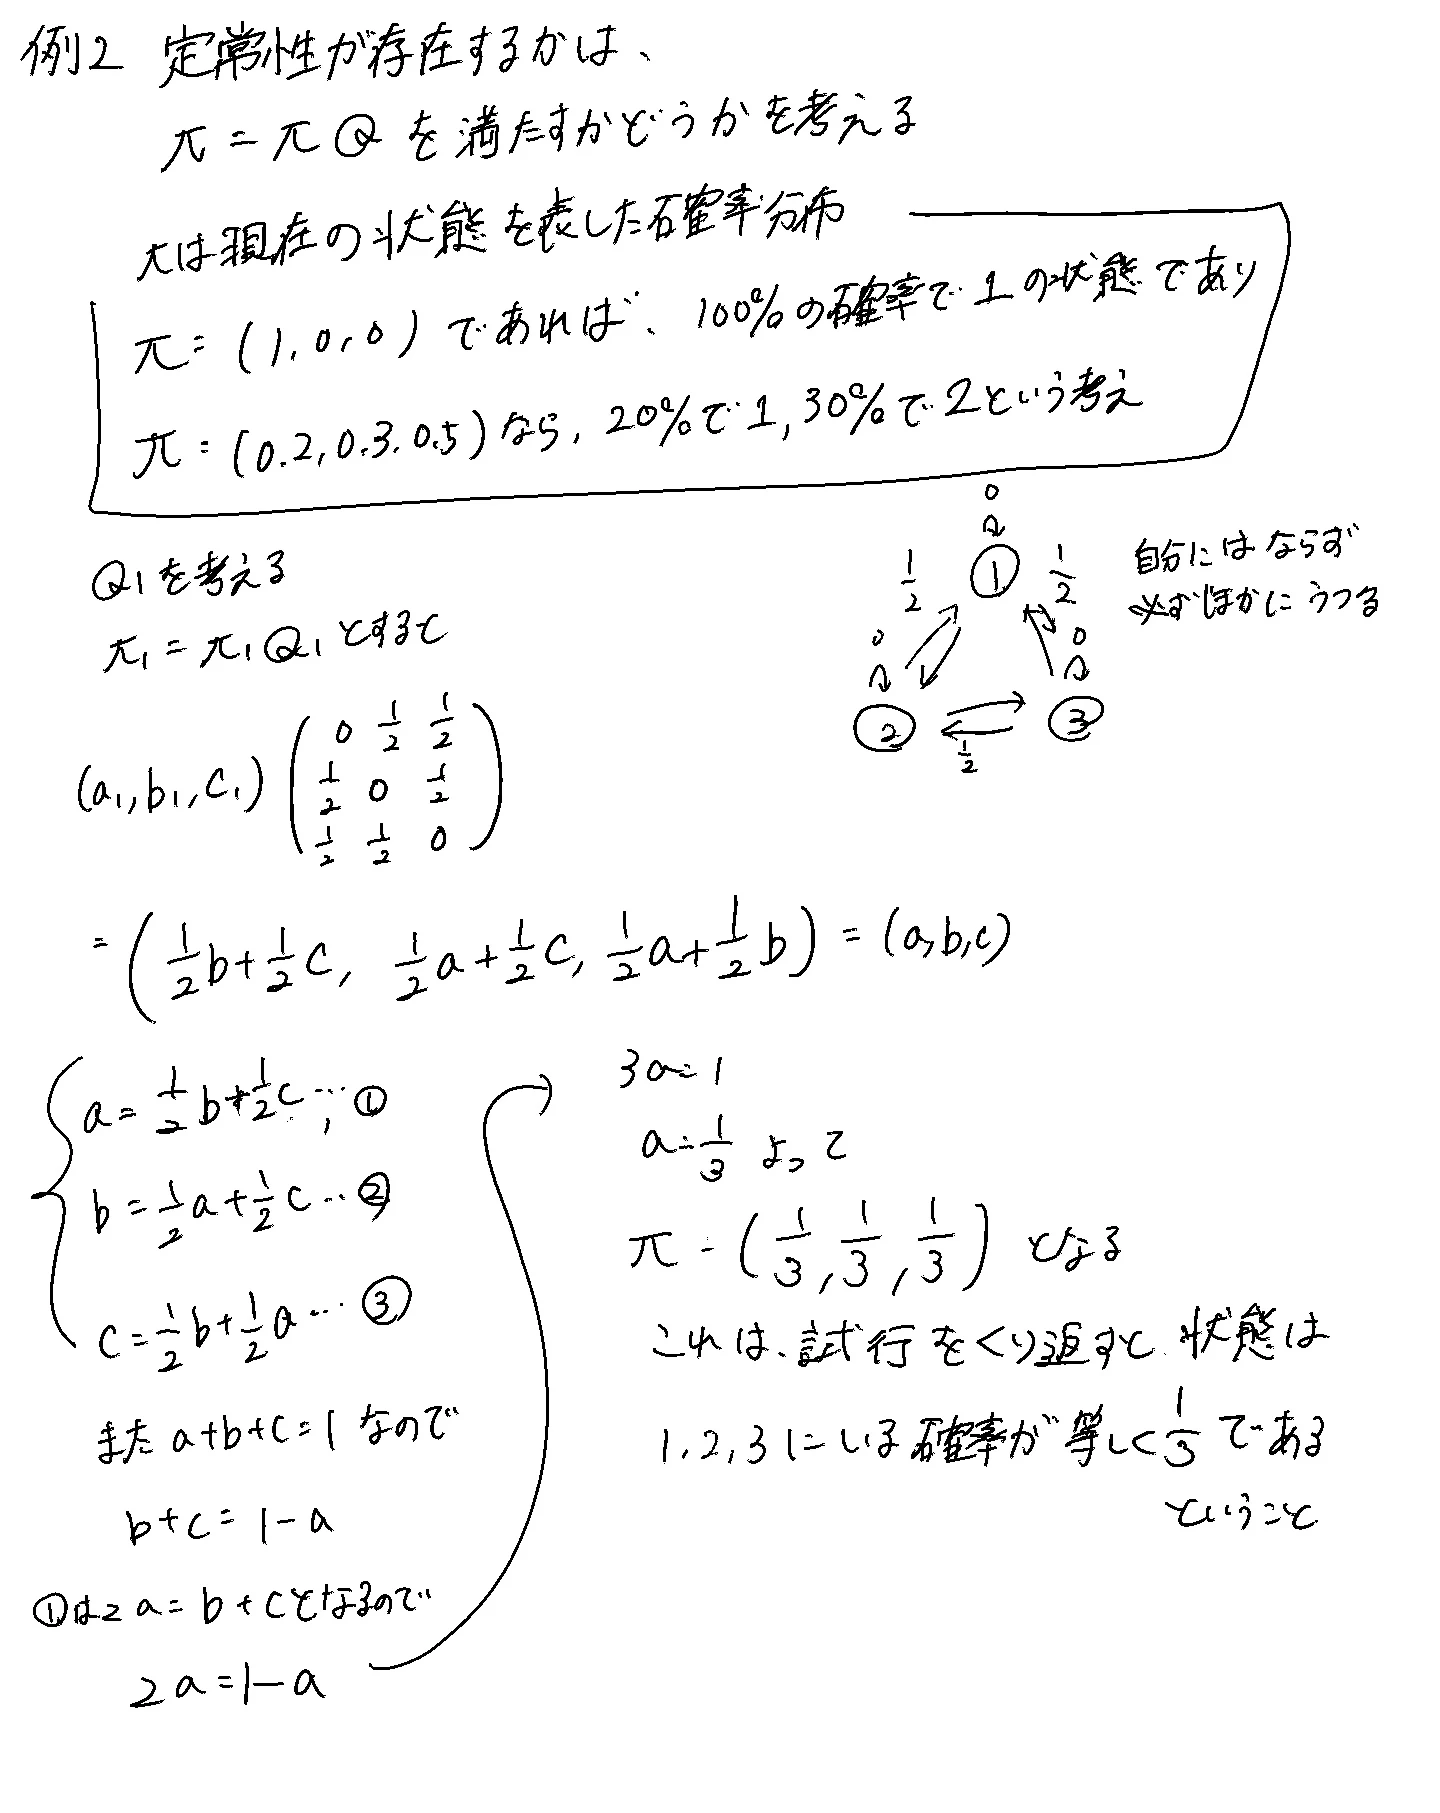 例2 定常性が存在するかは、
π = πQ を満たすかどうかを考える
πは現在の状態を表した確率分布
π = (1, 0, 0) であれば、100%の確率で1の状態であり
π = (0.2, 0.3, 0.5) なら、20%で1, 30%で2という考え
0
1/2 ① 1/2
自分にはならず
必ずほかにうつる
0 0
② ③
1/2
Q₁を考える
π₁ = π₁Q₁とすると
(a₁, b₁, c₁) ( 0 1/2 1/2
1/2 0 1/2
1/2 1/2 0 )
= (1/2b + 1/2c, 1/2a + 1/2c, 1/2a + 1/2b) = (a, b, c)
a = 1/2b + 1/2c … ①
b = 1/2a + 1/2c … ②
c = 1/2b + 1/2a … ③
また a+b+c=1 なので
b+c = 1-a
①は2a = b+cとなるので
2a = 1-a
3a = 1
a = 1/3 よって
π = (1/3, 1/3, 1/3) となる
これは、試行をくり返すと、状態は
1, 2, 3にいる確率が等しく1/3である
ということ